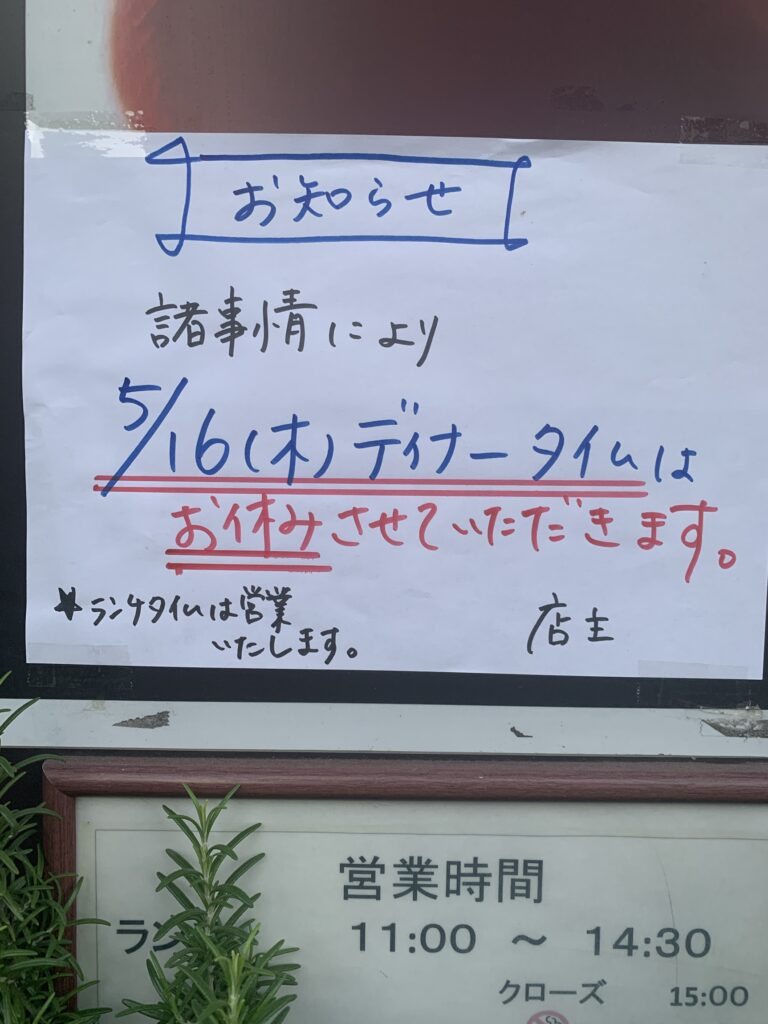 お知らせ
諸事情により
5/16(木)ディナータイムは
お休みさせていただきます。
★ランチタイムは営業
いたします。
店主
営業時間
ラン 11:00 ～ 14:30
クローズ 15:00